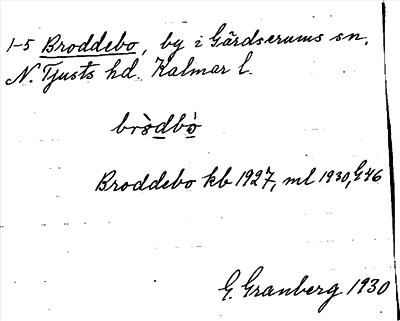 1-5 Broddebo, by i Gärdserums sn,
N. Tjusts hd. Kalmar l.
bròdbò
Broddebo kb 1927, ml 1930, G46
G. Granberg 1930